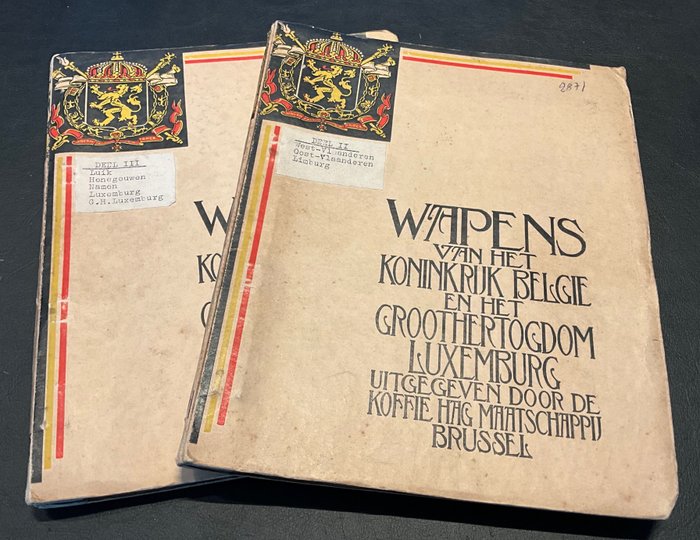 DEEL III
Luik
Henegouwen
Namen
Luxemburg
G.H.Luxemburg
W
KO
DEEL II
West-Vlaanderen
Oost-Vlaanderen
Limburg
2871
WAPENS
VAN HET
KONINKRIJK BELGIE
EN HET
GROOTHERTOGDOM
LUXEMBURG
UITGEGEVEN DOOR DE
KOFFIE HAG MAATSCHAPPIJ
BRUSSEL